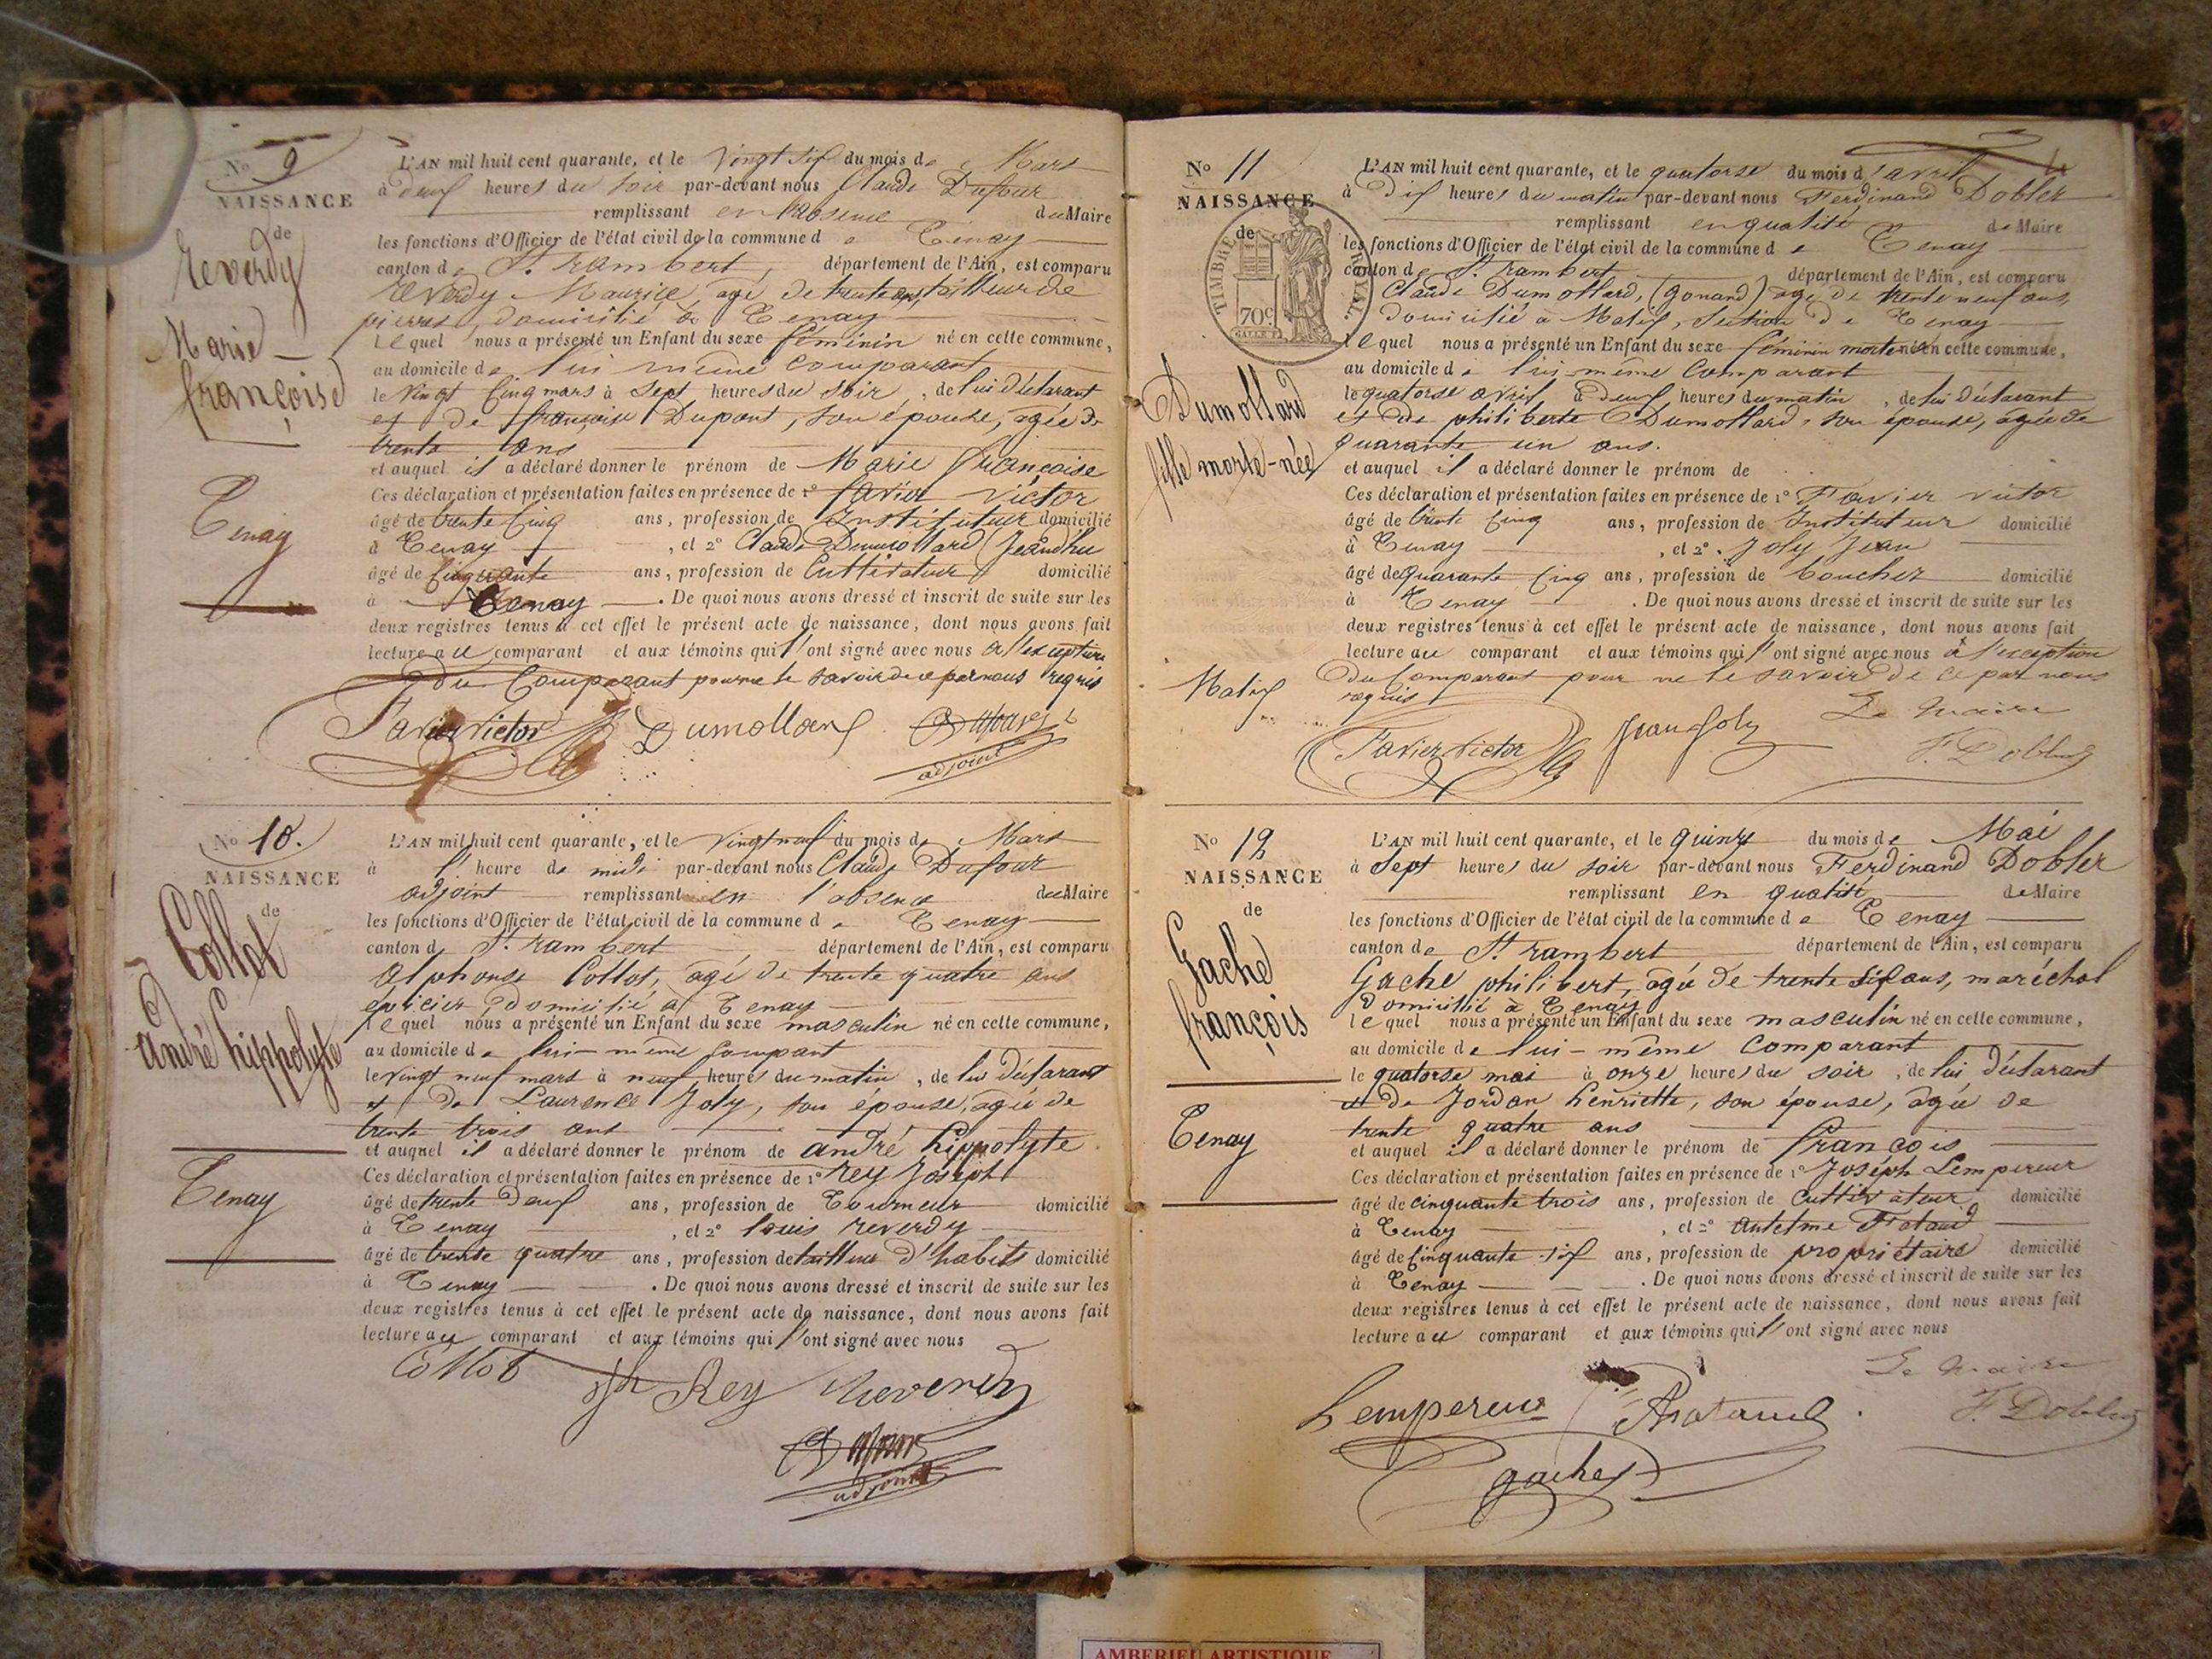 No 9
NAISSANCE
de
Reverdy
Marie
françoise
Tenay
L'AN mil huit cent quarante, et le vingt six du mois de Mars
à deux heures du soir par-devant nous Claude Dufour
remplissant en l'absence du Maire
les fonctions d'Officier de l'état civil de la commune de Tenay
canton de St. rambert, département de l'Ain, est comparu
reverdy Maurice, agé de trente ans, tailleur de
pierres, domicilié à Tenay
lequel nous a présenté un Enfant du sexe féminin né en cette commune,
au domicile de lui même comparant
le vingt cinq mars à sept heures du soir, de lui déclarant
et de françoise Dupont, son épouse, agée de
trente ans
et auquel il a déclaré donner le prénom de Marie françoise
Ces déclaration et présentation faites en présence de 1º favier victor
âgé de trente cinq ans, profession de Instituteur domicilié
à Tenay, et 2º Claude Dumollard
âgé de cinquante ans, profession de Cultivateur domicilié
à Tenay. De quoi nous avons dressé et inscrit de suite sur les
deux registres tenus à cet effet le présent acte de naissance, dont nous avons fait
lecture au comparant et aux témoins qui l'ont signé avec nous à l'exception
du Comparant pour ne le savoir de ce par nous requis
Favier victor Dumollard Dufour
adjoint
No 10.
NAISSANCE
de
Collot
André hippolyte
Tenay
L'AN mil huit cent quarante, et le vingt neuf du mois de Mars
à l'heure de midi par-devant nous Claude Dufour
adjoint remplissant en l'absence du Maire
les fonctions d'Officier de l'état civil de la commune de Tenay
canton de St. rambert département de l'Ain, est comparu
alphonse Collot, agé de trente quatre ans
épicier, domicilié à Tenay
lequel nous a présenté un Enfant du sexe masculin né en cette commune,
au domicile de lui-même compant
le vingt neuf mars à neuf heures du matin, de lui déclarant
et de Laurence Joly, son épouse, agée de
trente trois ans
et auquel il a déclaré donner le prénom de andré hippolyte
Ces déclaration et présentation faites en présence de 1º rey Joseph
âgé de trente deux ans, profession de Tourneur domicilié
à Tenay, et 2º louis reverdy
âgé de trente quatre ans, profession de tailleur d'habits domicilié
à Tenay. De quoi nous avons dressé et inscrit de suite sur les
deux registres tenus à cet effet le présent acte de naissance, dont nous avons fait
lecture au comparant et aux témoins qui l'ont signé avec nous
Collot jh Rey Reverdy
Dufour
adjoint
No 11
NAISSANCE
de
TIMBRE ROYAL.
70c.
Dumollard
fille morte-née
Matix
L'AN mil huit cent quarante, et le quatorse du mois d'avril
à dix heures du matin par-devant nous Ferdinand Dobler
remplissant en qualité de Maire
les fonctions d'Officier de l'état civil de la commune de Tenay
canton de St. rambert département de l'Ain, est comparu
Claude Dumollard, (gonand) agé de trente neuf ans,
domicilié à Matix, section de Tenay
lequel nous a présenté un Enfant du sexe féminin morte né en cette commune,
au domicile de lui-même Comparant
le quatorse avril à deux heures du matin, de lui déclarant
et de philiberte Dumollard, son épouse, agée de
quarante un ans.
et auquel il a déclaré donner le prénom de
Ces déclaration et présentation faites en présence de 1º Favier victor
âgé de trente cinq ans, profession de Instituteur domicilié
à Tenay, et 2º. Joly Jean
âgé de quarante cinq ans, profession de boucher domicilié
à Tenay. De quoi nous avons dressé et inscrit de suite sur les
deux registres tenus à cet effet le présent acte de naissance, dont nous avons fait
lecture au comparant et aux témoins qui l'ont signé avec nous à l'exception
du Comparant pour ne le savoir de ce par nous
requis
Favier victor Jean Joly Le Maire
F. Dobler
No 12
NAISSANCE
de
Gache
françois
Tenay
L'AN mil huit cent quarante, et le quinze du mois de Mai
à sept heures du soir par-devant nous Ferdinand Dobler
remplissant en qualité de Maire
les fonctions d'Officier de l'état civil de la commune de Tenay
canton de St. rambert département de l'Ain, est comparu
Gache philibert, agé de trente six ans, maréchal
domicilié à Tenay
lequel nous a présenté un Enfant du sexe masculin né en cette commune,
au domicile de lui-même Comparant
le quatorse mai à onze heures du soir, de lui déclarant
et de Jordan henriette, son épouse, agée de
trente quatre ans
et auquel il a déclaré donner le prénom de françois
Ces déclaration et présentation faites en présence de 1º Joséph Lempereur
âgé de cinquante trois ans, profession de cultivateur, domicilié
à Tenay, et 2º antelme
âgé de cinquante six ans, profession de propriétaire domicilié
à Tenay. De quoi nous avons dressé et inscrit de suite sur les
deux registres tenus à cet effet le présent acte de naissance, dont nous avons fait
lecture au comparant et aux témoins qui l'ont signé avec nous
Le Maire
Lempereur F. Dobler
gache
AMBERIEU ARTISTIQUE